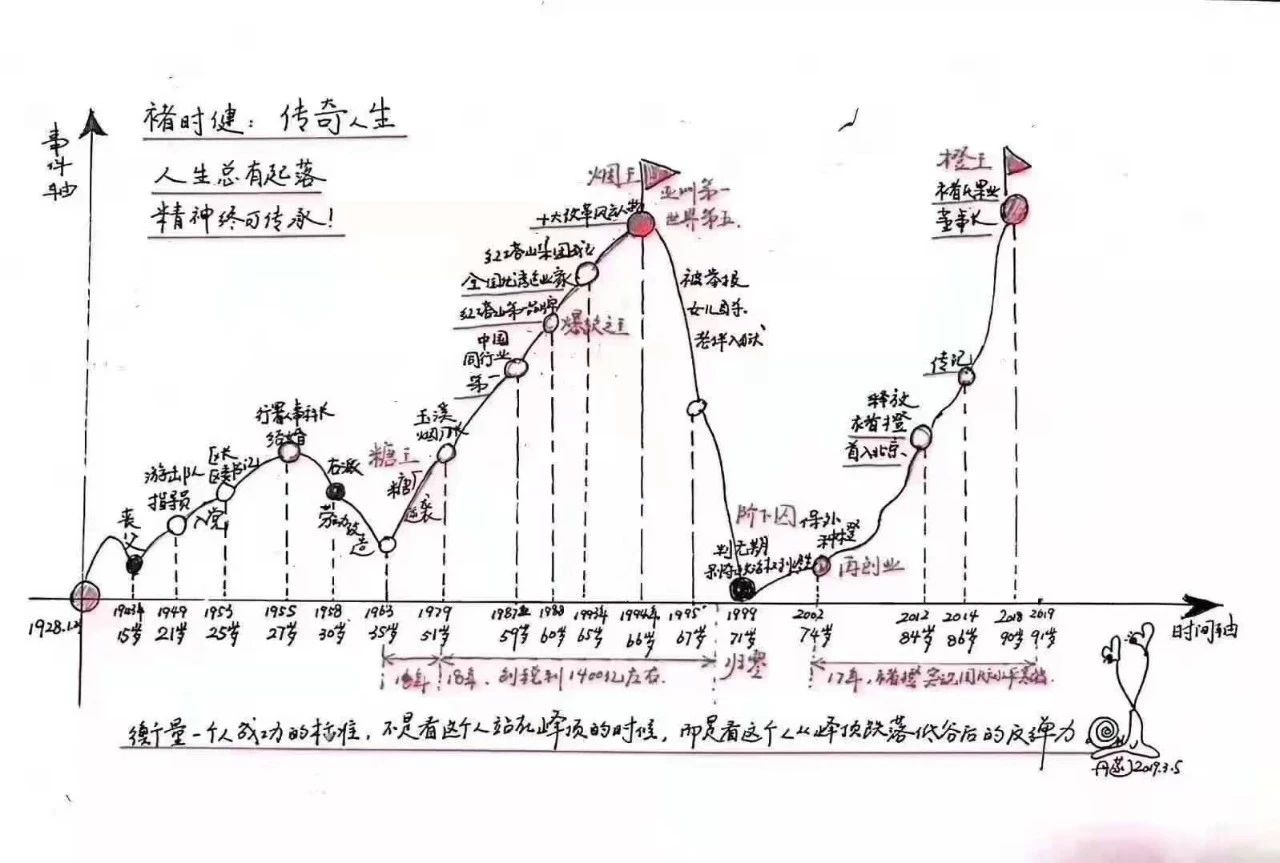 褚时健：传奇人生
人生总有起落
精神终可传承！
事件轴
丧父
游击队
指导员
入党
区长
区委书记
行署人事科长
结婚
右派
劳动改造
糖王
糖厂
逆袭
玉溪
烟厂长
中国
同行业
第一
红塔山第一品牌
爆款之王
红塔山集团成立
全国优秀企业家
十大改革风云人物
烟王
亚洲第一
世界第五
被举报
女儿自杀
老伴入狱
阶下囚
判无期
剥夺政治权利终生
保外
种橙
再创业
释放
褚橙
首入北京
传记
橙王
褚氏果业
董事长
1928.1
1943年 1949 1953 1955 1958 1963 1979 1987 1988 1993年 1994年 1995 1999 2002 2012 2014 2018 2019
15岁 21岁 25岁 27岁 30岁 35岁 51岁 59岁 60岁 65岁 66岁 67岁 71岁 74岁 84岁 86岁 90岁 91岁
时间轴
18年，创税利1400亿左右.
归零
17年，褚橙
衡量一个人成功的标准，不是看这个人站在峰顶的时候，而是看这个人从峰顶跌落低谷后的反弹力
2019.3.5